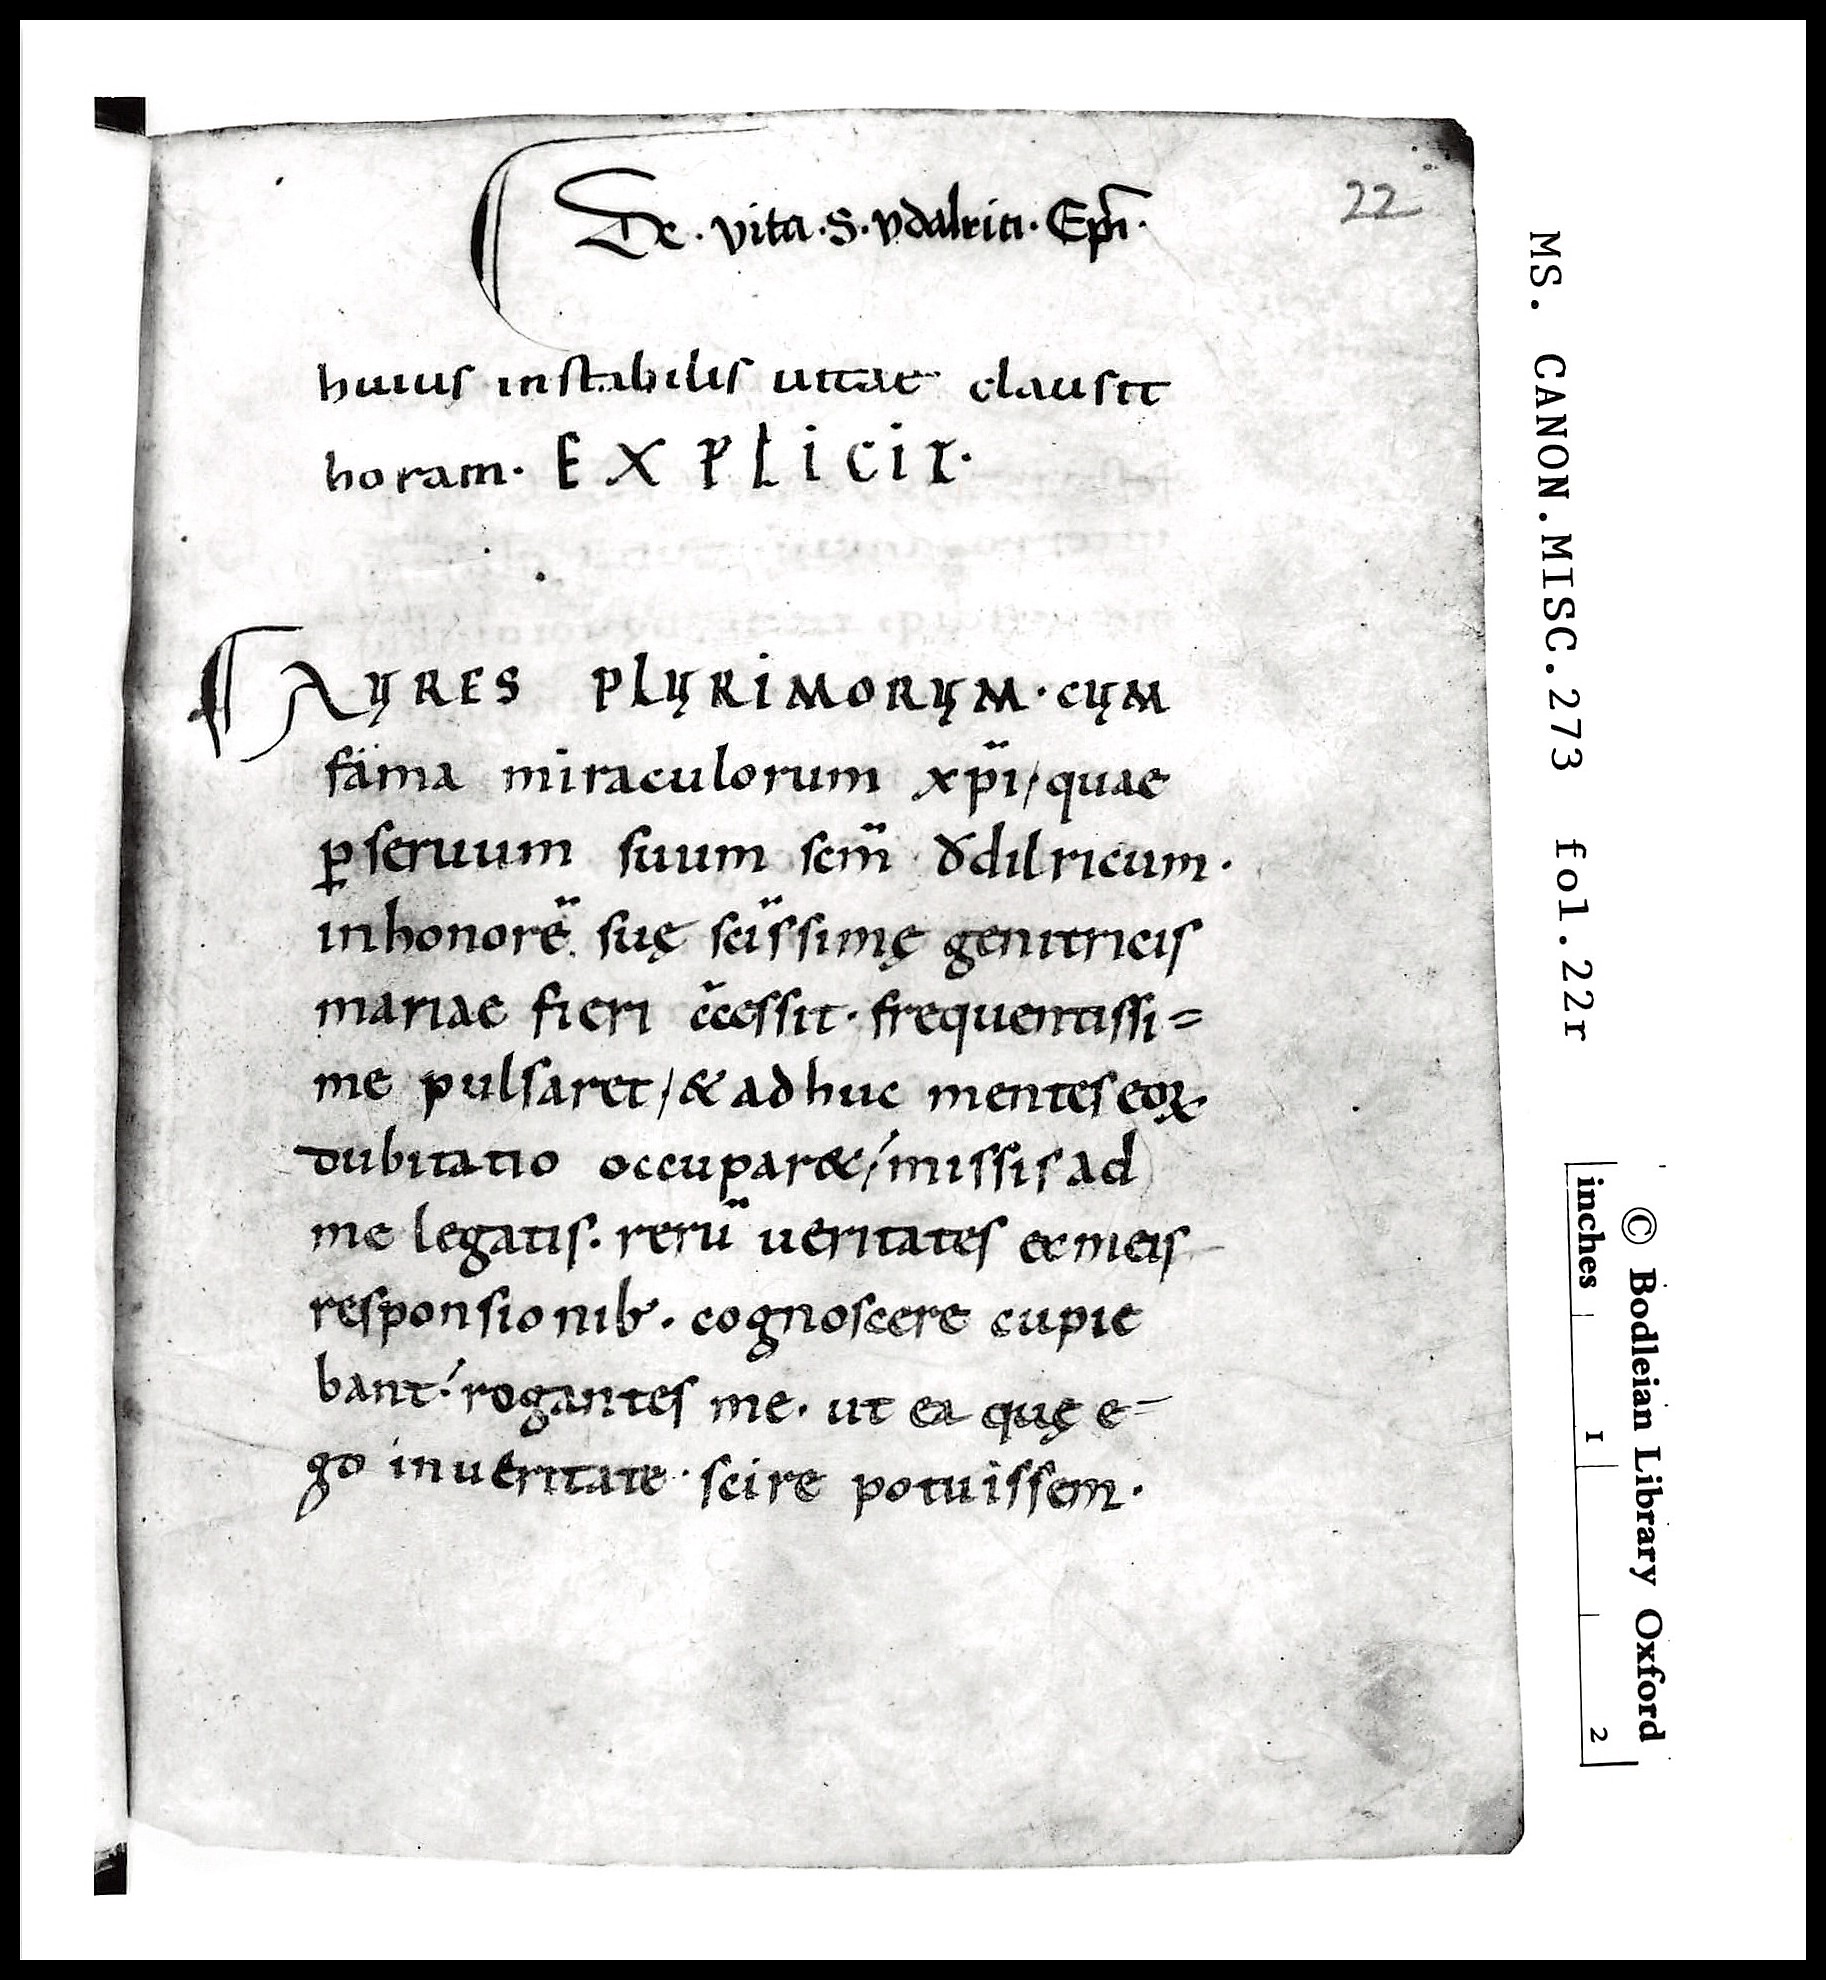 De · vita · S · vdalrici · Ep̄i ·
22
huius instabilis uitae clausit
horam · EXPLICIT ·
AURES PLURIMORUM · CUM
fama miraculorum xp̄i / quae
ꝑ seruum suum scm̄ Ődilricum ·
in honorē suę scīssimę genitricis
mariae fieri c̄cessit · frequentissi=
me pulsaret / & adhuc mentes eoꝝ
dubitatio occupar& / missis ad
me legatis · rerū ueritates ex meis
responsionib; · cognoscere cupie
bant · rogantes me · ut ea quę e-
go in ueritate · scire potuissem ·
MS. CANON.MISC.273 fol.22r
© Bodleian Library Oxford
inches 1 2